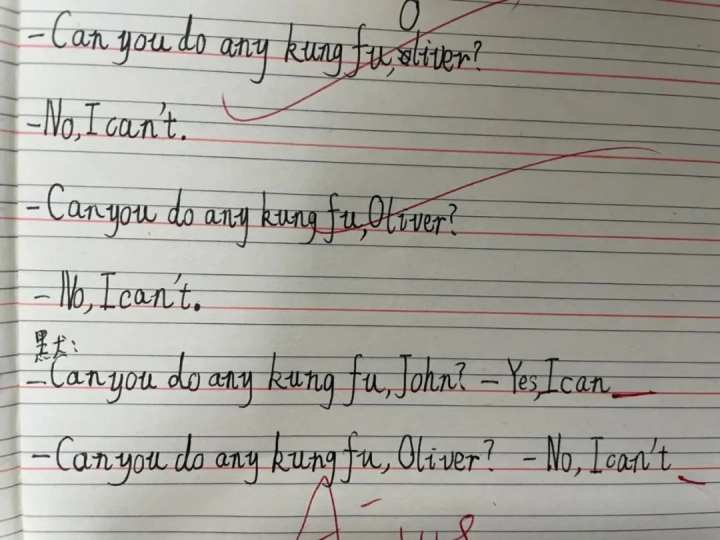 O
-Can you do any kung fu, oliver?
-No, I can't.
-Can you do any kung fu, Oliver?
-No, I can't.
默:
-Can you do any kung fu, John? -Yes, I can
-Can you do any kung fu, Oliver? -No, I can't
A-